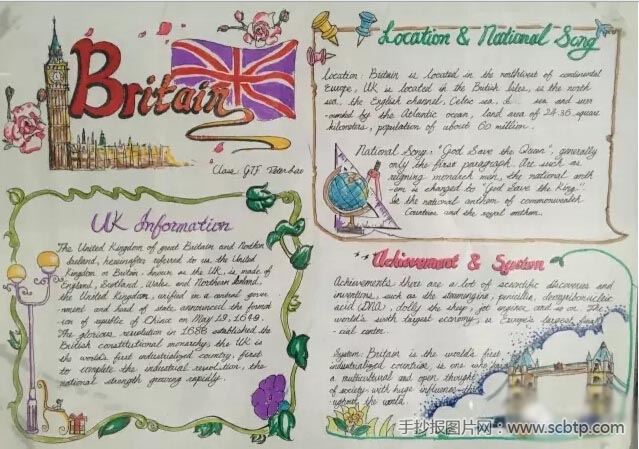 Britain
Class: GTF.
Location & National Song
Location: Britain is located in the northwest of continental
Europe, UK is located in the British Isles, is the north
sea, the English channel, Celtic sea,
sea and surr
-ounded by the Atlantic ocean, land area of 24.36 square
kilometers, population of about 60 million.
National Song: "God Save the Queen", generally
only the first paragraph. Are such as
reigning monarch men, the national anth
-em is changed to "God Save the King".
the national anthem of commonwealth
Countries and the royal anthem.
UK Information
The United Kingdom of great Britain and Northen
Ireland, hereinafter referred to as the United
Kingdom or Britain, known as the UK, is made of
England, Scotland, Wales and Northern Ireland,
the United Kingdom, unified in a central gover
-nment and head of state, announced the found
-ion of republic of China on May 19, 1649.
The glorious revolution in 1688 established the
British constitutional monarchy, the UK is
the world's first industrialized country, first
to complete the industrial revolution, the
national strength growing rapidly.
Achievement & System
Achievements: there are a lot of scientific discoveries and
inventions, such as the steamengine, penicillin,
acid (DNA), dolly the sheep, jet engine, and so on. The
world's sixth largest economy, is Europe's largest finan
-cial center.
System: Britain is the world's first
industrialized countries, is one who
a multicultural and open thought
of society with huge influence
the world.
手抄报图片网:www.scbtp.com